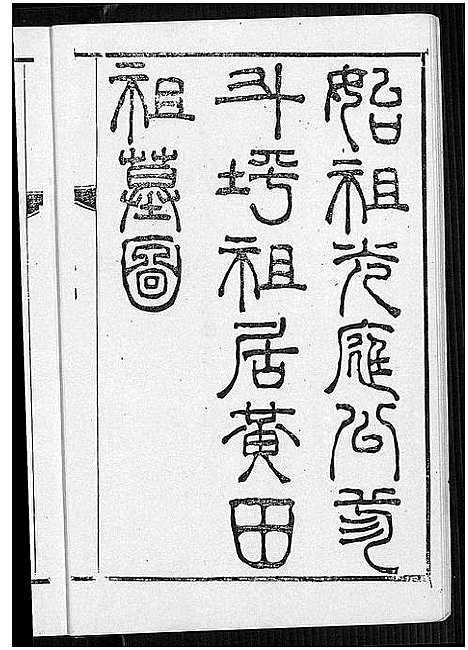 始祖光庭公方
斗祖居黃田
祖墓圖